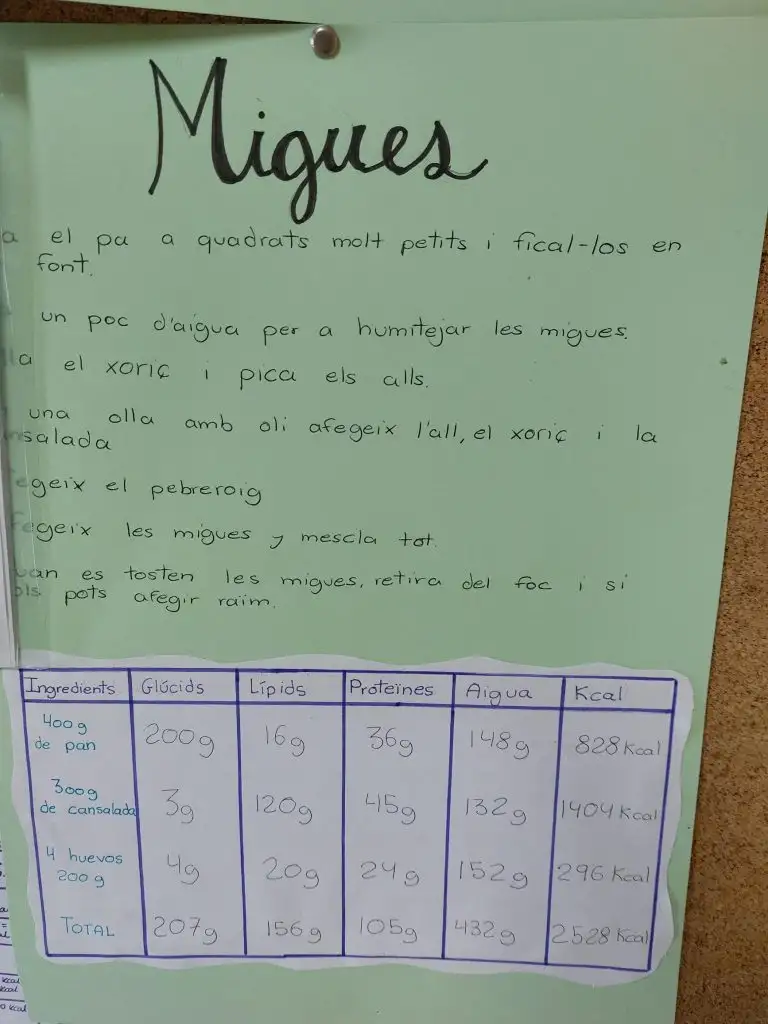 Migues
a el pa a quadrats molt petits i fical-los en
font.
un poc d'aigua per a humitejar les migues.
lla el xoriç i pica els alls.
una olla amb oli afegeix l'all, el xoriç i la
nsalada
egeix el pebreroig
fegeix les migues y mescla tot.
uan es tosten les migues, retira del foc i si
ols pots afegir raïm.
Ingredients Glúcids Lípids Proteïnes Aigua Kcal
400g de pan 200g 16g 36g 148g 828 Kcal
300g de cansalada 3g 120g 45g 132g 1404 Kcal
4 huevos 200 g 4g 20g 24g 152g 296 Kcal
TOTAL 207g 156g 105g 432g 2528 Kcal
Kcal
Kcal
0 Kcal